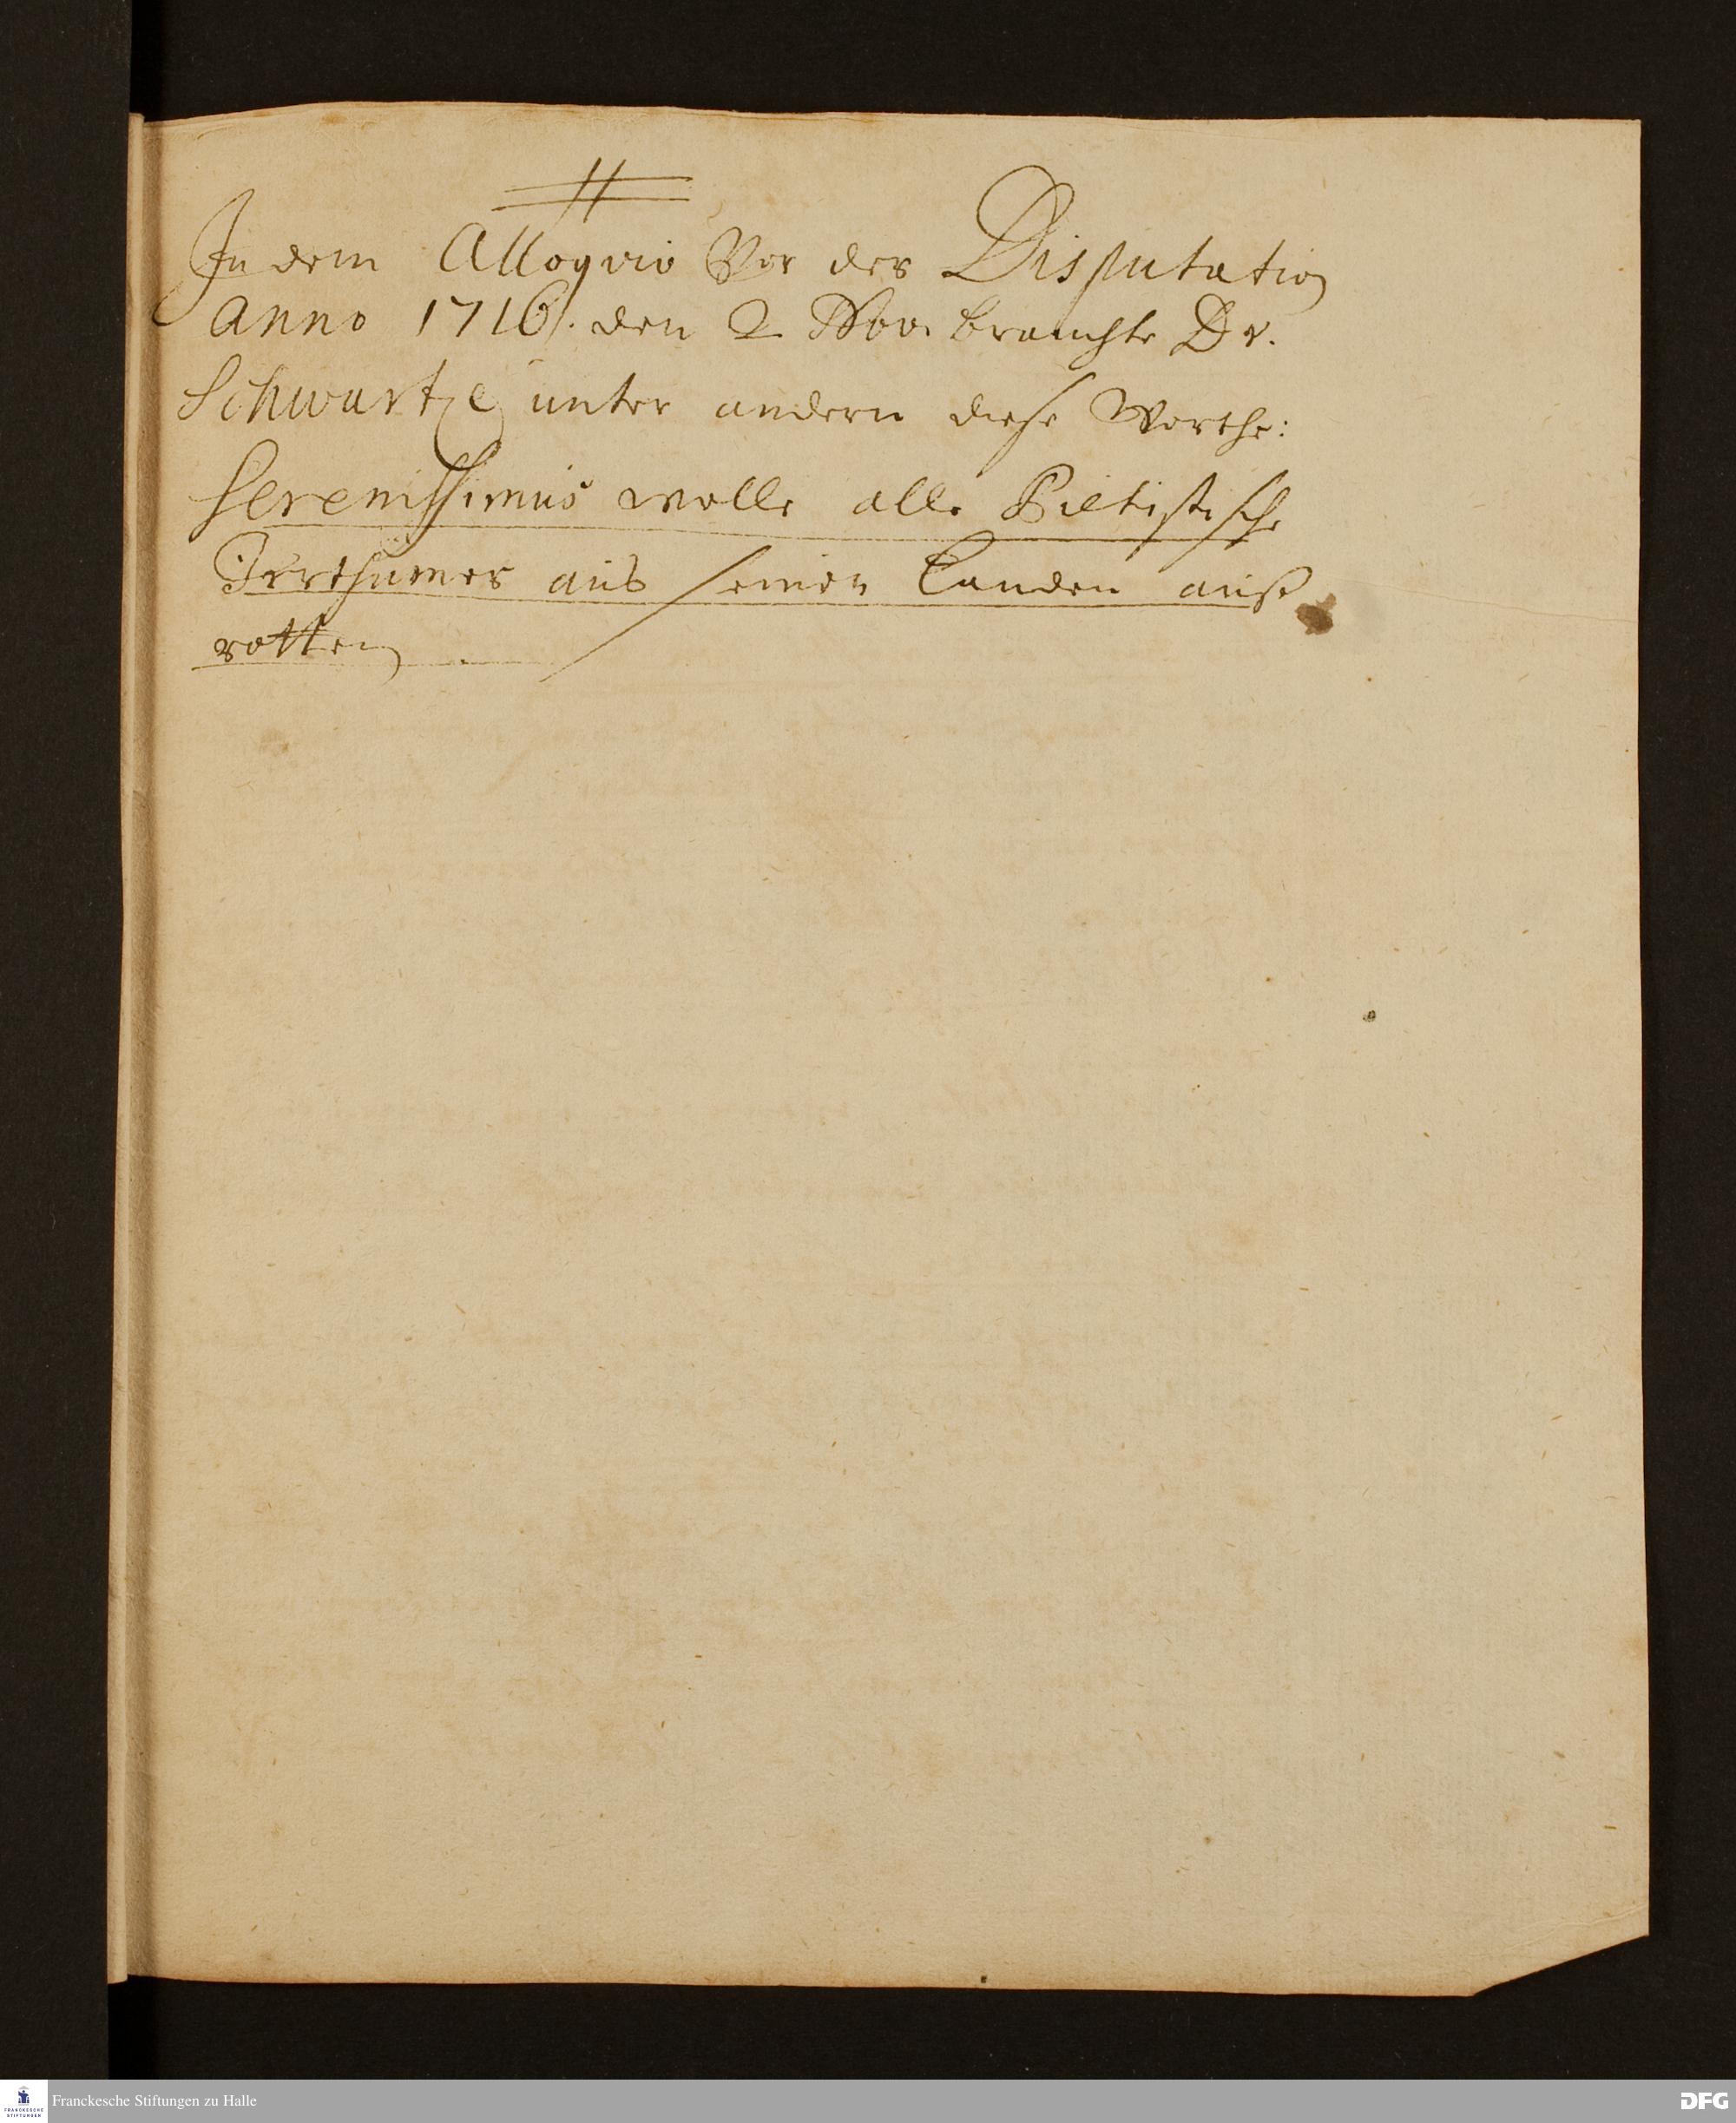 #
In dem Alloqvio Vor der Disputation
Anno 1716. den 2 Nov. brauchte Dr.
Schwartze unter andern diese Worthe:
Serenissimus wolle alle Pietistische
Irrthumer aus seinen Landen auß
rotten
Franckesche Stiftungen zu Halle
FRANCKESCHE
STIFTUNGEN
DFG